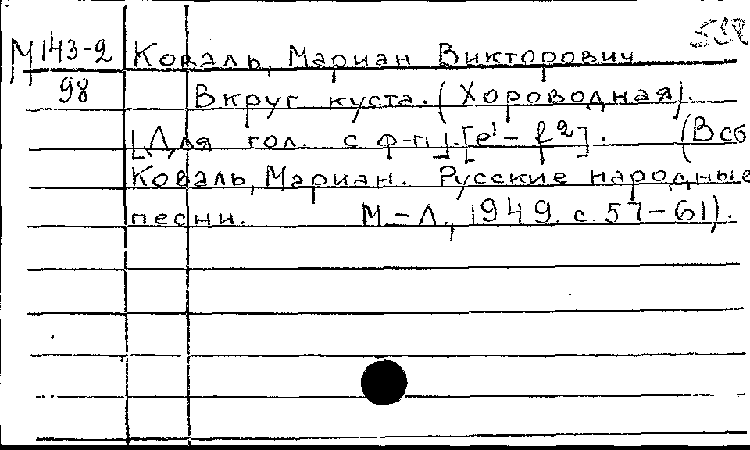 538
М 143-2 Коваль, Мариан Викторович
98 Вкруг куста. (Хороводная).
[Для гол. с ф-п]. [e¹ – f²]. (В сб
Коваль, Мариан. Русские народные
песни. М–Л, 1949. с. 57–61).